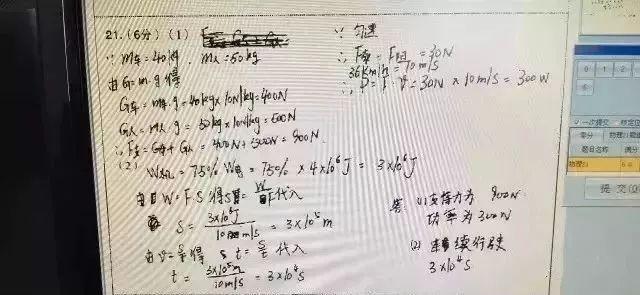 21.(6分)(1)
∵ m车=40kg . m人=50kg
由G=m·g得
G车=m车·g=40kg×10N/kg=400N
G人=m人·g=50kg×10N/kg=500N
∴F支=G车+G人=400N+500N=900N.
(2)
W机=75% W电=75%×4×10⁶J=3×10⁶J
由W=F·S得S=W/F代入
S=3×10⁶J/10m/s=3×10⁵m
由v=s/t得 t=s/v代入
t=3×10⁵m/10m/s=3×10⁴s
∵匀速
∴F牵=F阻=30N
36km/h=10m/s
∴P=F·v=30N×10m/s=300W
答:(1)支持力为900N
功率为300W
(2)续行驶
3×10⁴s
0 1 2
一次提交
题目名称 满分
物理21
提交